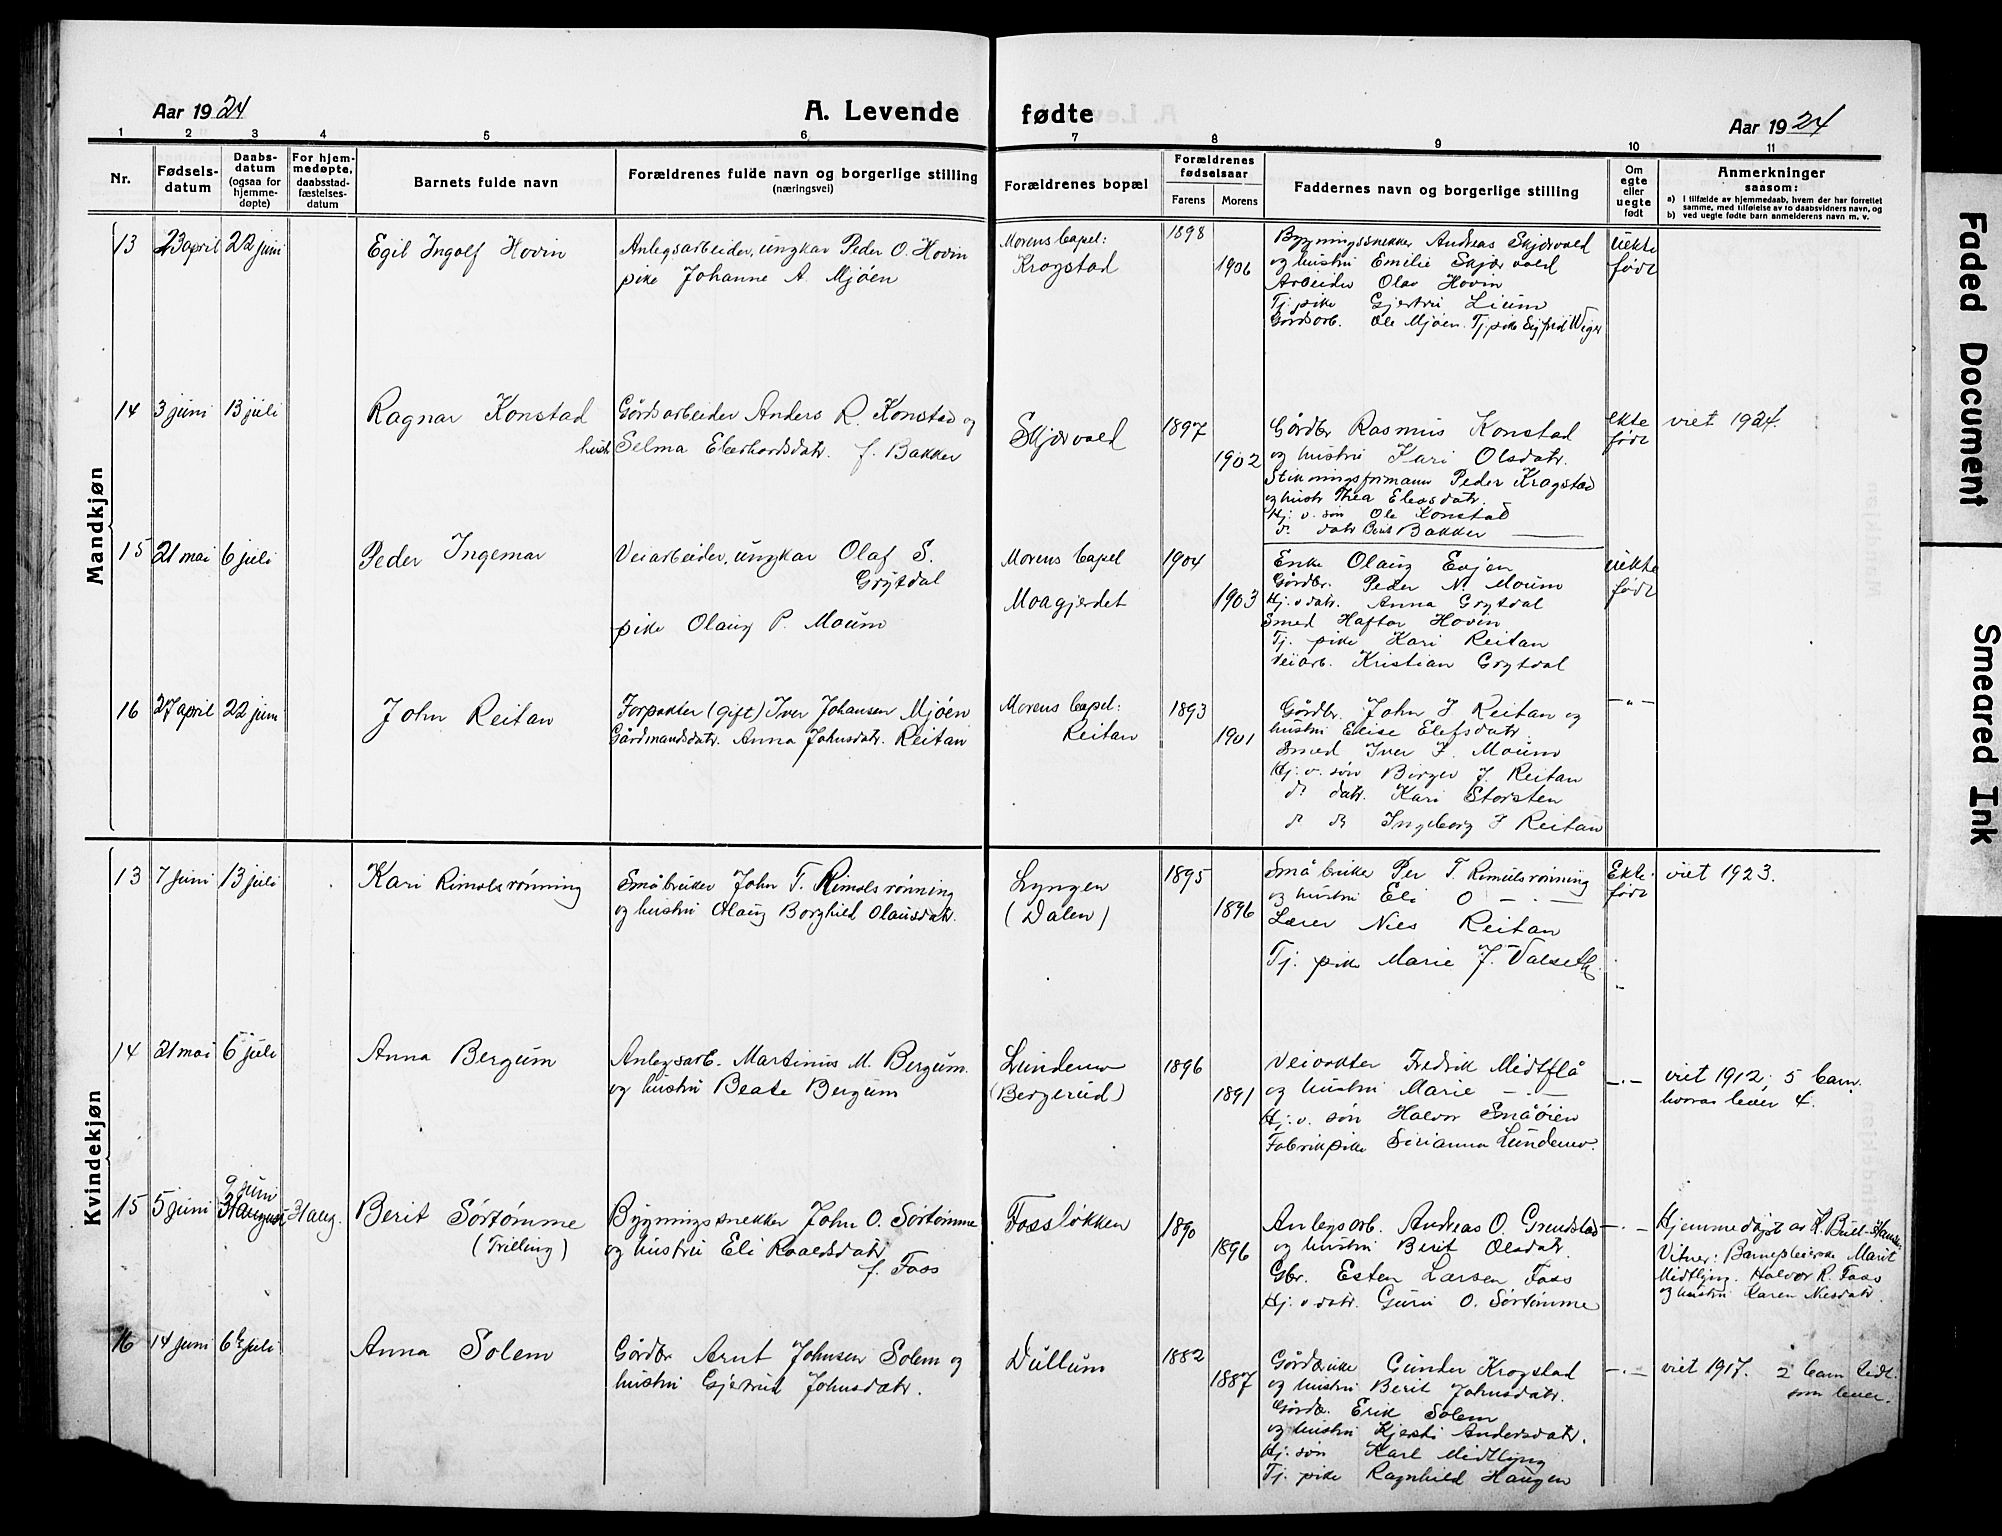 Aar 1924
A. Levende fødte
Aar 1924
1 2 3 4 5 6 7 8 9 10 11
Nr.
Fødsels-
datum
Daabs-
datum
(ogsaa for
hjemme-
døpte)
For hjem-
medøpte,
daabsstad-
fæstelses-
datum
Barnets fulde navn
Forældrenes fulde navn og borgerlige stilling
(næringsvei)
Forældrenes bopæl
Forældrenes
fødselsaar
Farens Morens
Faddernes navn og borgerlige stilling
Om
egte
eller
uegte
født
Anmerkninger
saasom:
a) I tilfælde av hjemmedaab, hvem der har forrettet
samme, med tilføielse av to daabsvidners navn, og
b) ved uegte fødte barn anmelderens navn m. v.
Mandkjøn
13 23 april 22 juni
Egil Ingolf Hovin
Anlegsarbeider, ungkar Peder O. Hovin
pike Johanne A. Mjøen
Morens bopel:
Krogstad
1898
1906
Bygningssnekker Andreas Skjærvold
og hustru Emilie Skjærvold
Arbeider Olav Hovin
Tj. pike Gjertru Lium
Gårdsarb. Ole Mjøen. Tj. pike Sigfrid Weger
Uekte
født
14 3 juni 13 juli
Ragnar Konstad
Gårdsarbeider Anders R. Konstad og
hustr Selma Eberhardsdatr. f. Bakken
Skjærvold
1897
1902
Gårdbr Rasmus Konstad
og hustru Kari Olsdatr.
Stikningsformann Peder Krogstad
og hustr Thea Elefsdatr.
Hj. v. søn Ole Konstad
d. datr Berit Bakken
ekte
født
viet 1924.
15 21 mai 6 juli
Peder Ingemar
Veiarbeider, ungkar Olaf S.
Grytdal
pike Olaug P. Moum
Morens bopel
Moagjerdet
1904
1903
Enke Olaug Evjen
Gårdbr. Peder N. Moum
Hj. v datr. Anna Grytdal
Smed Haftor Hovin
Tj. pike Kari Reitan
Veiarb. Kristian Grytdal
Uekte
født
16 27 april 22 juni
John Reitan
Forpakter (gift) Iver Johansen Mjøen
Gårdmandsdatr. Anna Johnsdatr. Reitan
Morens bopel:
Reitan
1893
1901
Gårdbr. John J Reitan og
hustru Elise Elefsdatr.
Smed Iver J. Moum
Hj. v. søn Birger J. Reitan
d. datr. Kari Storsten
d. d. Ingeborg J Reitan
-"-
Kvindekjøn
13 7 juni 13 juli
Kari Rimolsrønning
Småbruker John T. Rimolsrønning
og hustru Olaug Borghild Olausdatr.
Lyngen
(Dalen)
1895
1896
Småbruker Per T. Rimolsrønning
og hustru Eli O -.-
Lærer Nils Reitan
Tj. pike Marie J. Valseth
Ekte
født
viet 1923.
14 21 mai 6 juli
Anna Bergum
Anlegsarb. Martinus M. Bergum.
og hustru Beate Bergum
Lundemo
(Bergerud)
1896
1891
Veivokter Fredrik Midtflå
og hustru Marie -.-
Hj. v. søn Halvor Småøien
Fabrikpike Sirianna Lundemo.
-.-
viet 1912, 5 barn
hvorav lever 4.
15 5 juni
9 juni
31 august 31 aug.
Berit Sørtømme
(Trilling)
Bygningssnekker John O. Sørtømme
og hustru Eli Roaldsdatr
f. Foss
Fossløkken
1890
1896
Anlegsarb. Andreas O. Grindstad
og hustru Berit Olsdatr.
Gbr. Esten Larsen Foss
Hj. v datr. Guru O. Sørtømme
-.-
Hjemmedøpt av K. Bull-Hansen
Vitner: Barnepleierske Marit
Midtlyng. Halvor R. Foss
og hustru Karen Nilsdatr.
16 14 juni 6te juli
Anna Solem
Gårdbr Arnt Johnsen Solem og
hustru Gjertrud Johnsdatr.
Dullum
1882
1887
Gårdbruker Gunder Krogstad
og hustru Berit Johnsdatr.
Gårdb. Erik Solem
og hustru Kjersti Andersdatr.
Hj. søn Karl Midtlyng
Tj. pike Ragnhild Haugen
-.-
viet 1917. 2 barn tidl.
som lever.
Faded Document
Smeared Ink